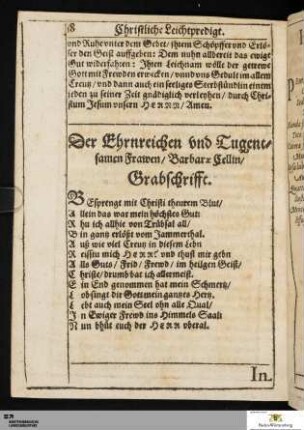 8 Christliche Leichtpredigt.
vnd Ruhe vnter dem Gebet/ jhrem Schöpffer vnd Erlö-
ser den Geist auffgeben: Dem nuhn allbereit das ewige
Gut widerfahren: Ihren Leichnam wölle der getrewe
Gott mit Frewden erwecken/ vnnd vns Gedult im allem
Creutz/ vnd dann auch ein seeliges Sterbstündlin einem
jeden zu seiner Zeit gnädiglich verleyhen/ durch Chri-
stum Jesum vnsern HERRN/ Amen.
Der Ehrnreichen vnd Tugent-
samen Frawen/ Barbar= Cellin/
Grabschrifft.
BEsprengt mit Christi thewrem Blut/
Allein das war mein höchstes Gut:
Rhu ich allhie von Trübsal all/
Bin gantz erlößt vom Jammerthal.
Auß wie viel Creutz in diesem Lebn
Reissiu mich HERR! vnd thust mir gebn
Alls Guts/ Frid/ Frewd/ im heilgen Geist/
Christe/ drumb bat ich allermeist.
Ein End genommen hat mein Schmertz/
Lobsingt dir Gott mein gantzes Hertz.
Lebt auch mein Seel ohn alle Qual/
In Ewiger Frewd ins Himmels Saal:
Nun bhüt euch der HERR vberal.
In.
Baden-Württemberg